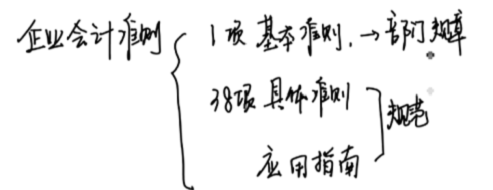 企业会计准则
1项 基本准则. → 部门规章
38项 具体准则
规范
应用指南